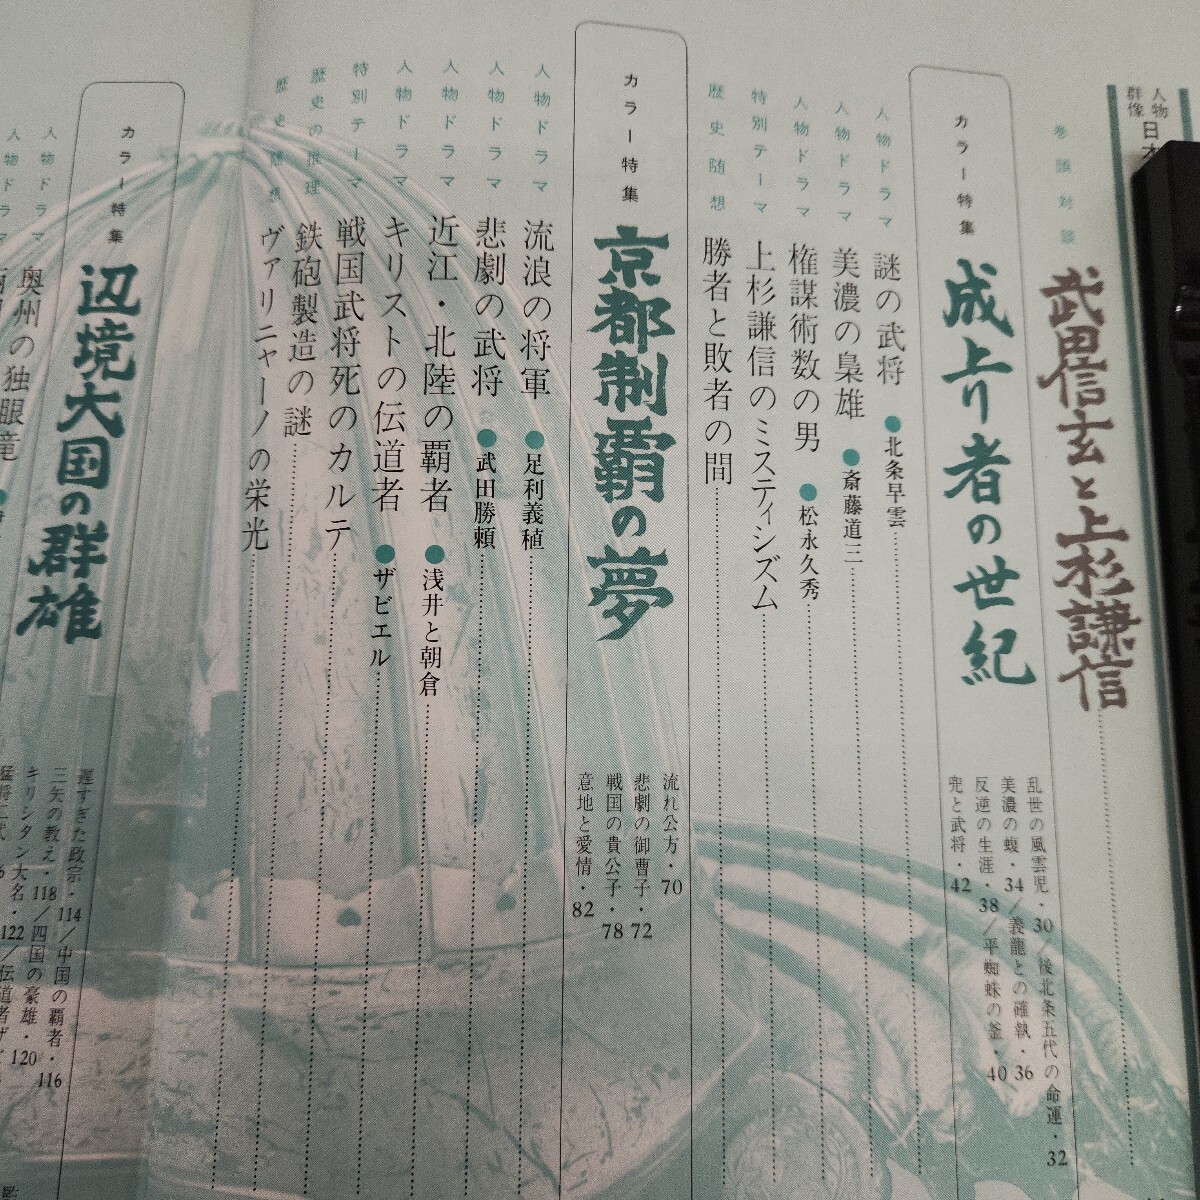 人物
群像
日本
巻頭対談
武田信玄と上杉謙信
カラー特集
成上り者の世紀
乱世の風雲児・30/後北条五代の命運・32
美濃の蝮・34/義龍との確執・36
反逆の生涯・38/平蜘蛛の釜・40
兜と武将・42
人物ドラマ
謎の武将●北条早雲
人物ドラマ
美濃の梟雄●斎藤道三
人物ドラマ
権謀術数の男●松永久秀
特別テーマ
上杉謙信のミスティシズム
歴史随想
勝者と敗者の間
カラー特集
京都制覇の夢
流れ公方・70
悲劇の御曹子・72
戦国の貴公子・78
意地と愛情・82
人物ドラマ
流浪の将軍●足利義稙
人物ドラマ
悲劇の武将●武田勝頼
人物ドラマ
近江・北陸の覇者●浅井と朝倉
人物ドラマ
キリストの伝道者●ザビエル
特別テーマ
戦国武将死のカルテ
歴史の推理
鉄砲製造の謎
歴史随想
ヴァリニャーノの栄光
カラー特集
辺境大国の群雄
遅すぎた政宗・114/中国の覇者・116
三矢の教え・118/四国の豪雄・120
キリシタン大名・122/伝道者ザ
人物ドラマ
奥州の独眼竜
人物ドラマ